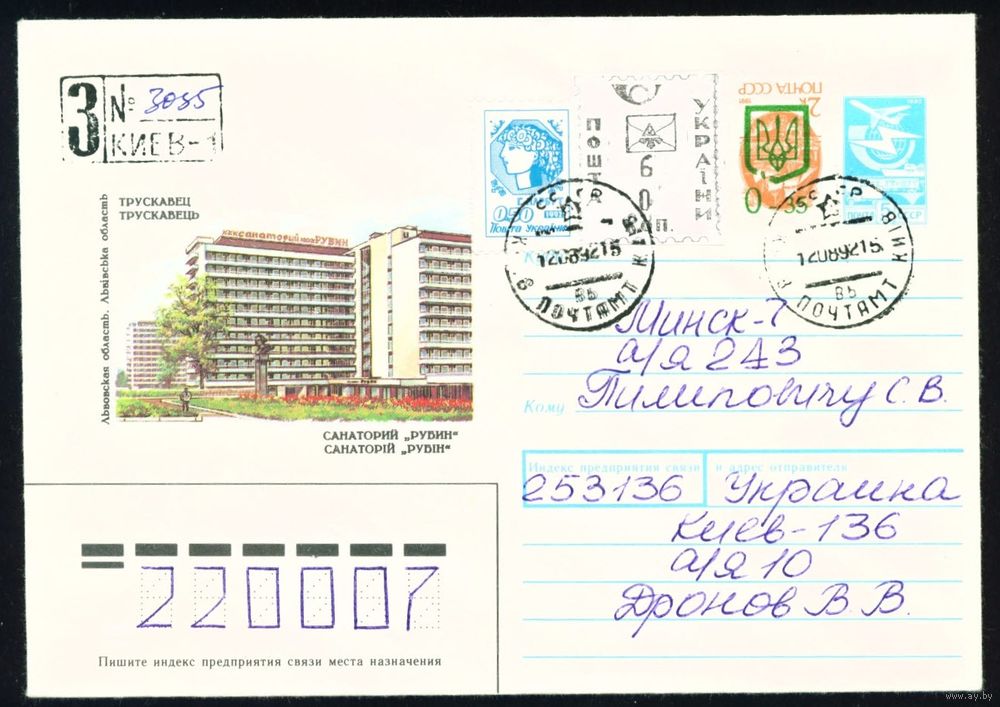 З № 3035
КИЕВ-1
ТРУСКАВЕЦ
ТРУСКАВЕЦЬ
Львовская область. Львівська область
санаторий РУБИН
САНАТОРИЙ „РУБИН“
САНАТОРІЙ „РУБІН“
0,50 1992
Пошта України
ПОШТА
60
УКРАЇНИ
ПОЧТА СССР
1991
2к
0-35
ПОЧТА СССР
СССР
12089215
ПОЧТАМТ КИЇВ
СССР
12089215
ПОЧТАМТ КИЇВ
Минск-7
а/я 243
Кому Пилиповичу С. В.
Индекс предприятия связи и адрес отправителя
253136 Украина
Киев-136
а/я 10
Дронов В В.
220007
Пишите индекс предприятия связи места назначения
www.ay.by